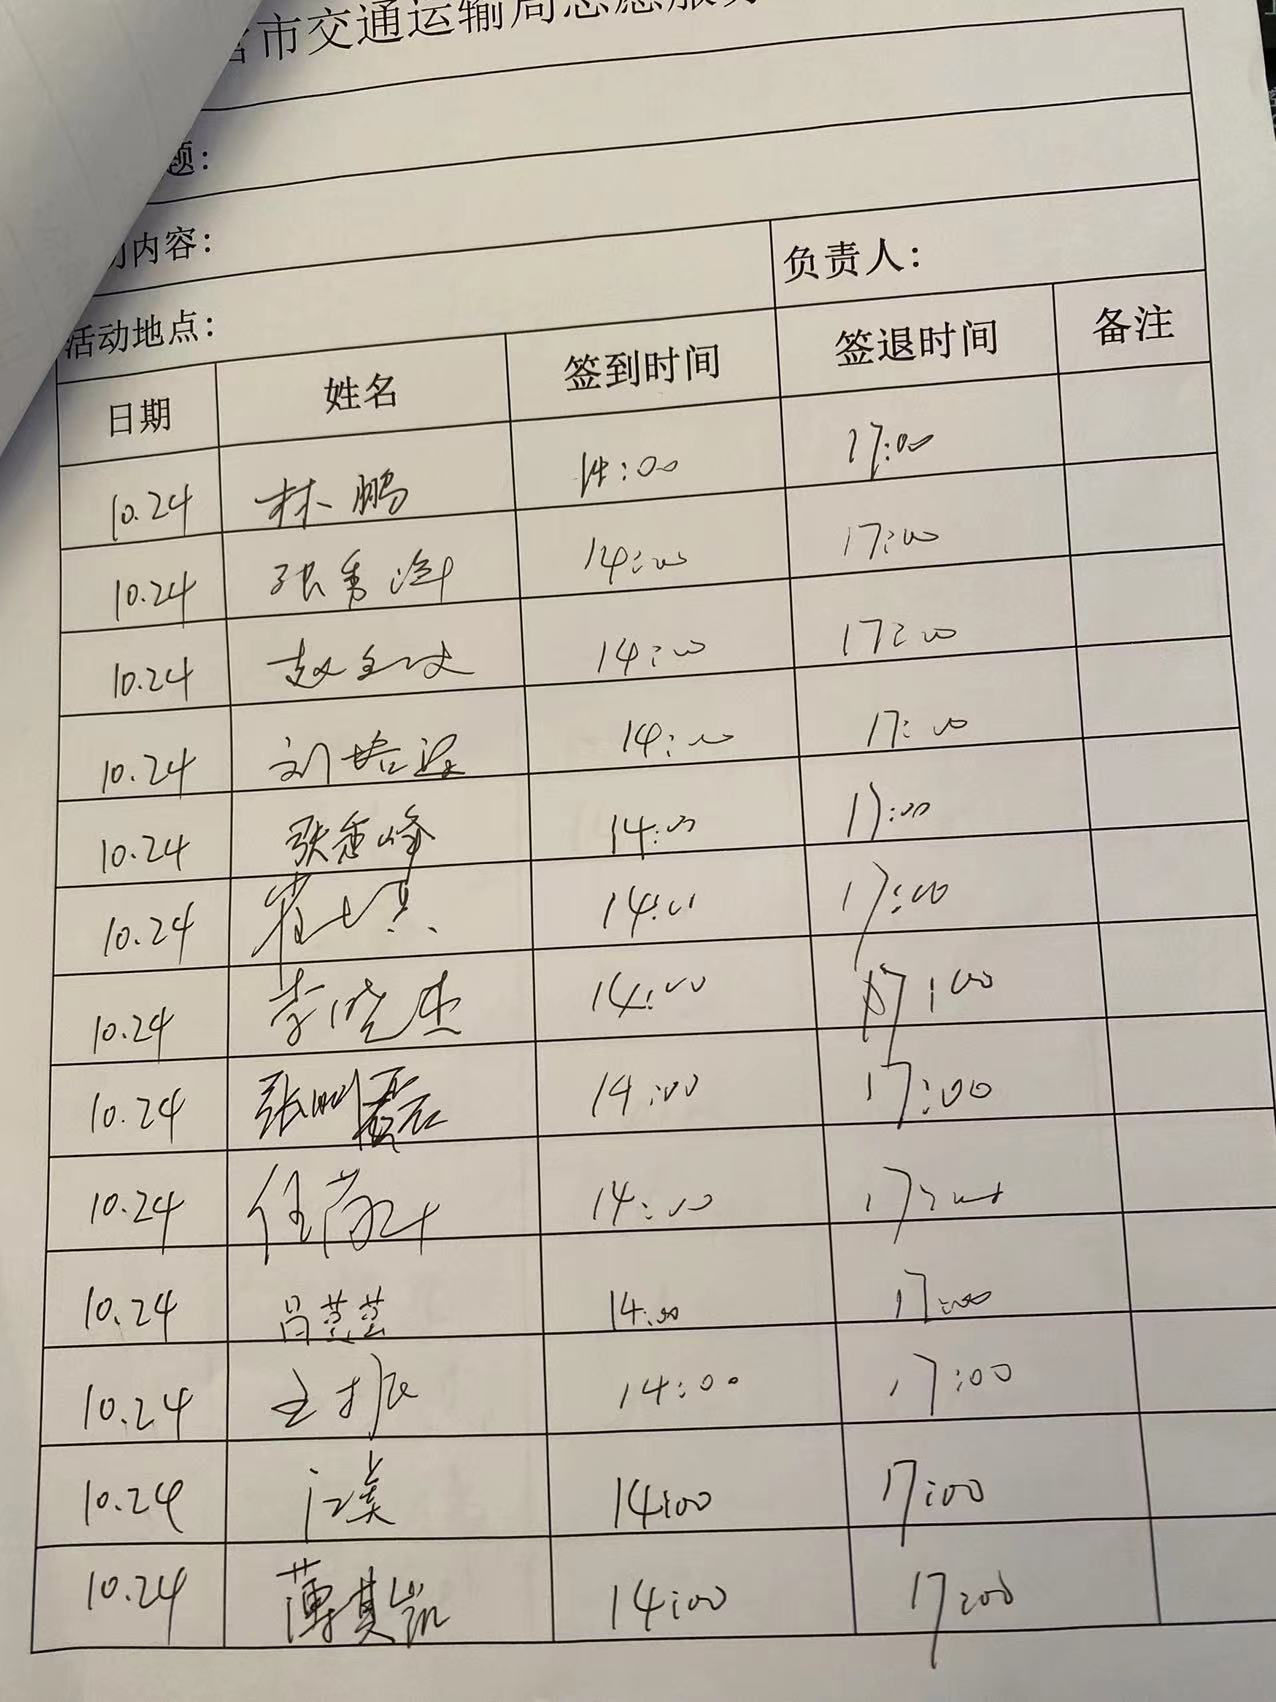 营市交通运输局志愿服务
题：
动内容：
活动地点： 负责人：
日期 姓名 签到时间 签退时间 备注
10.24 林鹏 14:00 17:00
10.24 14:00 17:00
10.24 14:00 17:00
10.24 14:00 17:00
10.24 14:00 17:00
10.24 14:00 17:00
10.24 李晓杰 14:00 17:00
10.24 14:00 17:00
10.24 14:00 17:00
10.24 14:00 17:00
10.24 王振 14:00 17:00
10.24 14:00 17:00
10.24 薄其凯 14:00 17:00